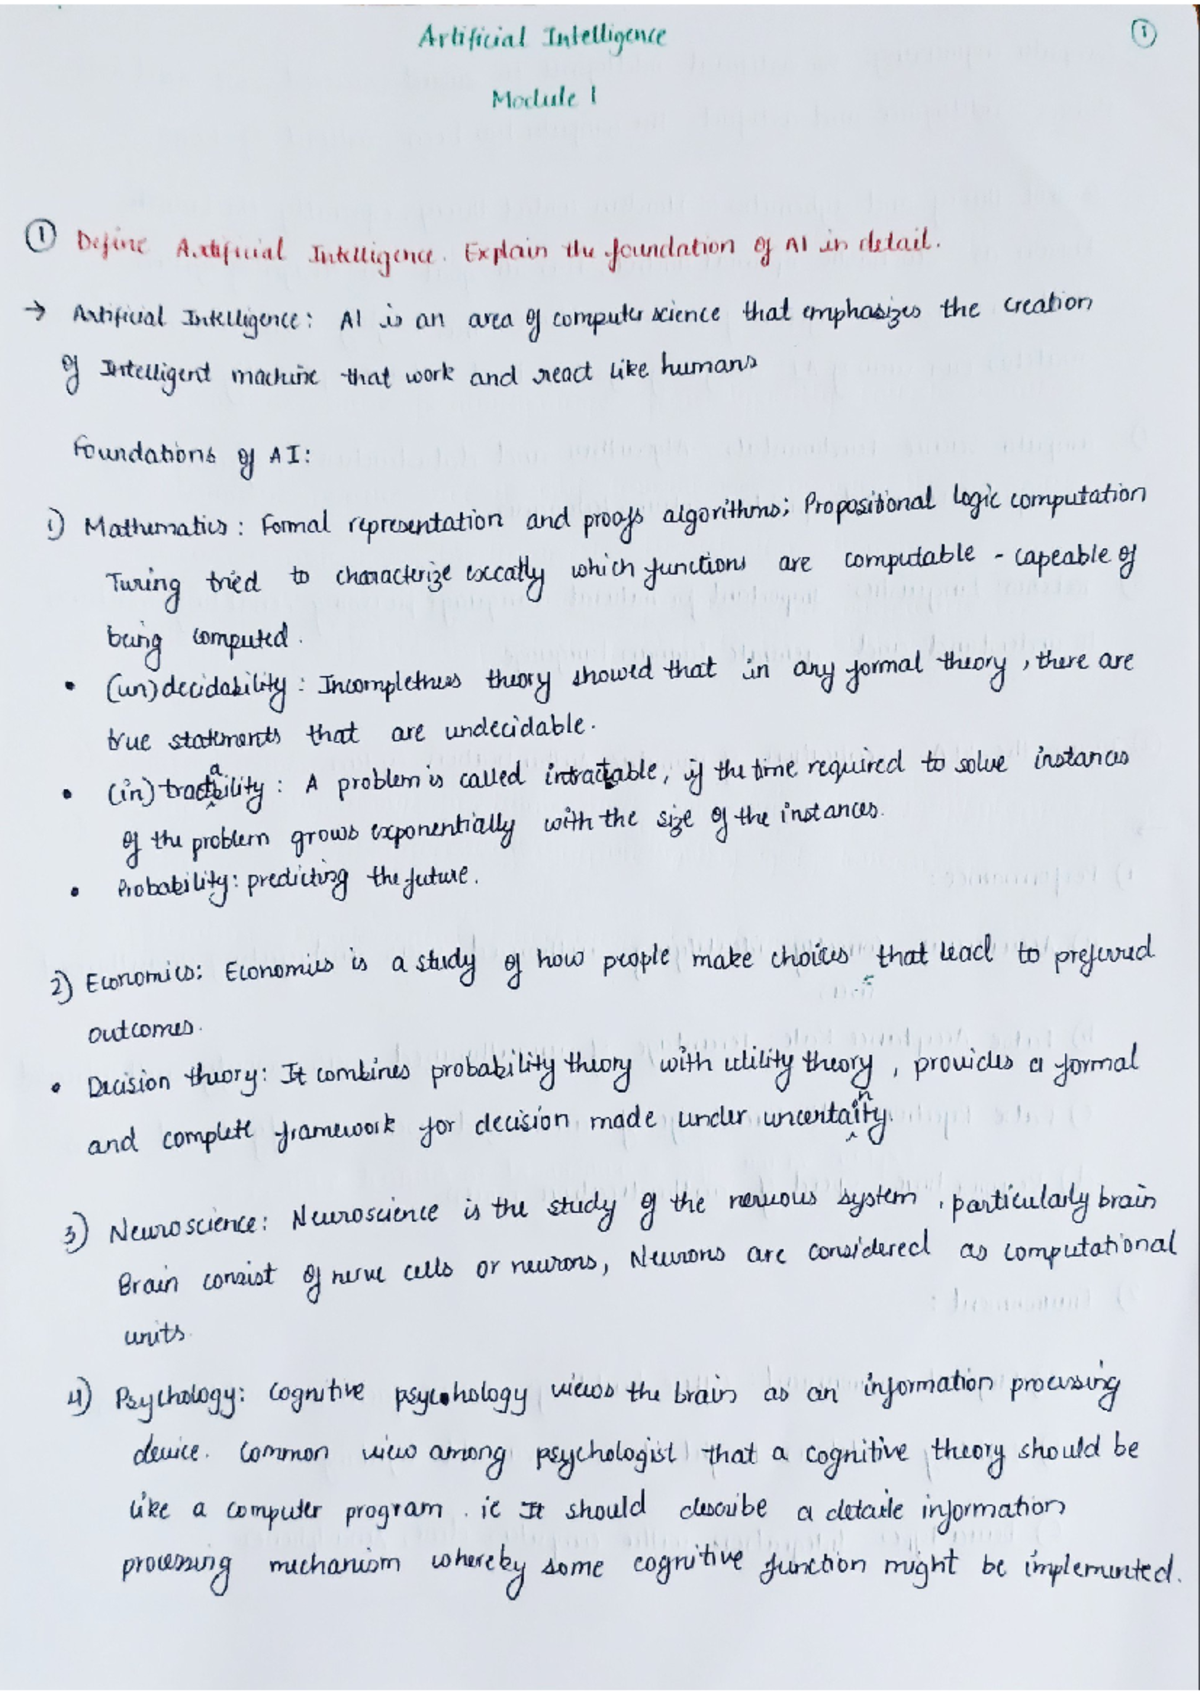 Artificial Intelligence
1
Module 1
1 Define Artificial Intelligence. Explain the foundation of AI in detail.
→ Artificial Intelligence: AI is an area of computer science that emphasizes the creation
of Intelligent machine that work and react like humans
Foundations of AI:
1) Mathematics: Formal representation and proofs algorithms; Propositional logic computation
Turing tried to characterize exccatly which functions are computable - capeable of
being computed.
• (un)decidability: Incompletness theory showed that in any formal theory, there are
true statements that are undecidable.
• (in)tractability: A problem is called intractable, if the time required to solve instances
of the problem grows exponentially with the size of the instances.
• Probability: predicting the future.
2) Economics: Economics is a study of how people make choices that lead to preferred
outcomes.
• Decision theory: It combines probability theory with utility theory, provides a formal
and complete framework for decision made under uncertainty.
3) Neuroscience: Neuroscience is the study of the nervous system, particularly brain
Brain consist of nerve cells or neurons, Neurons are considered as computational
units
4) Psychology: Cognitive psychology views the brain as an information processing
device. Common view among psychologist that a cognitive theory should be
like a computer program. ie It should describe a detaile information
processing mechanism whereby some cognitive function might be implemented.